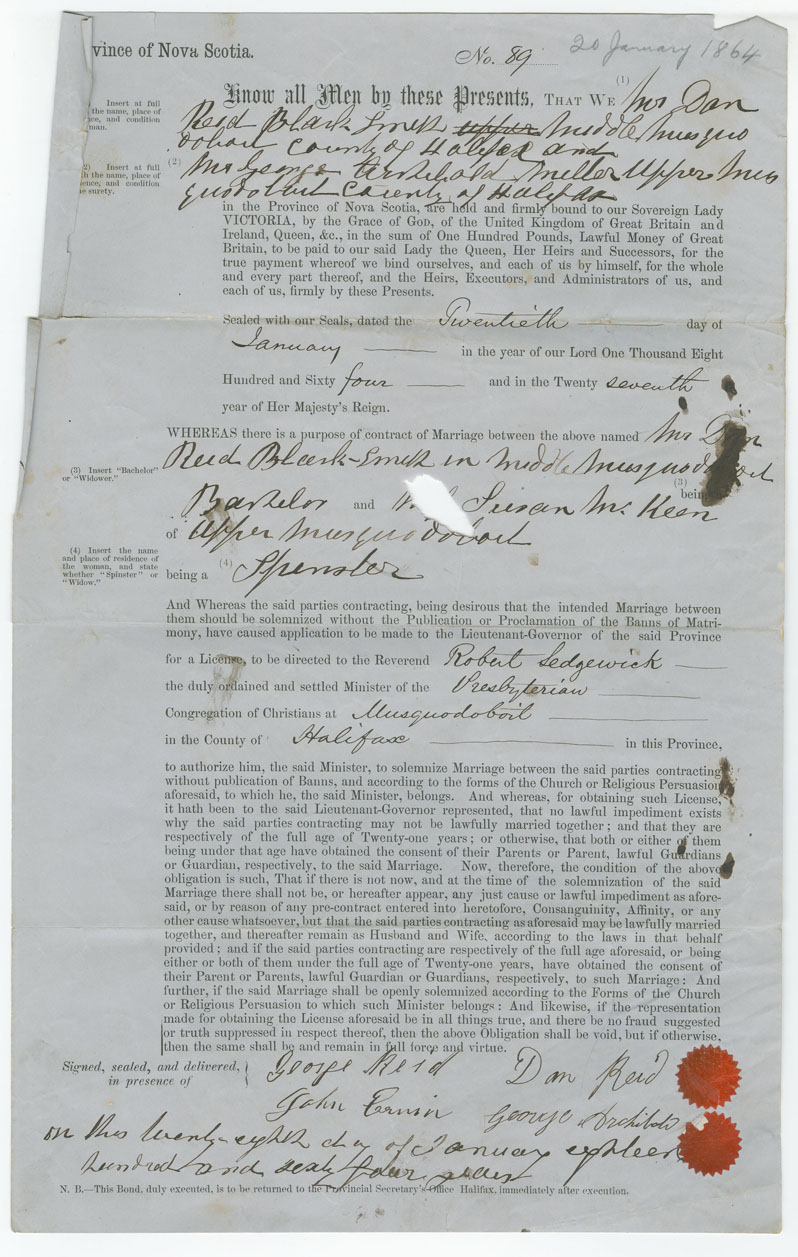 vince of Nova Scotia.
No. 89
20 January 1864
(1)
Know all Men by these Presents, THAT WE Mr Dan
Insert at full
the name, place of
ce, and condition
man.
Reid Black-Smith upper Middle Musquo
doboit County of Halifax and
2) Insert at full
h the name, place of
ence, and condition
e surety.
(2)
Mr George Archibald Miller Upper Mus
quodoboit County of Halifax
in the Province of Nova Scotia, are held and firmly bound to our Sovereign Lady
VICTORIA, by the Grace of GOD, of the United Kingdom of Great Britain and
Ireland, Queen, &c., in the sum of One Hundred Pounds, Lawful Money of Great
Britain, to be paid to our said Lady the Queen, Her Heirs and Successors, for the
true payment whereof we bind ourselves, and each of us by himself, for the whole
and every part thereof, and the Heirs, Executors, and Administrators of us, and
each of us, firmly by these Presents.
Sealed with our Seals, dated the Twentieth day of
January in the year of our Lord One Thousand Eight
Hundred and Sixty four and in the Twenty seventh
year of Her Majesty's Reign.
WHEREAS there is a purpose of contract of Marriage between the above named Mr Dan
Reid Black-Smith in Middle Musquodoboit
(3) Insert "Bachelor"
or "Widower."
(3)
bein
Bachelor and Susan McKeen
of Upper Musquodoboit
(4) Insert the name
and place of residence of
the woman, and state
whether "Spinster" or
"Widow."
being a (4) Spinster
And Whereas the said parties contracting, being desirous that the intended Marriage between
them should be solemnized without the Publication or Proclamation of the Banns of Matri-
mony, have caused application to be made to the Lieutenant-Governor of the said Province
for a License, to be directed to the Reverend Robert Sedgewick
the duly ordained and settled Minister of the Presbyterian
Congregation of Christians at Musquodoboit
in the County of Halifax in this Province,
to authorize him, the said Minister, to solemnize Marriage between the said parties contracting
without publication of Banns, and according to the forms of the Church or Religious Persuasion
aforesaid, to which he, the said Minister, belongs. And whereas, for obtaining such License,
it hath been to the said Lieutenant-Governor represented, that no lawful impediment exists
why the said parties contracting may not be lawfully married together; and that they are
respectively of the full age of Twenty-one years; or otherwise, that both or either of them
being under that age have obtained the consent of their Parents or Parent, lawful Guardians
or Guardian, respectively, to the said Marriage. Now, therefore, the condition of the above
obligation is such, That if there is not now, and at the time of the solemnization of the said
Marriage there shall not be, or hereafter appear, any just cause or lawful impediment as afore-
said, or by reason of any pre-contract entered into heretofore, Consanguinity, Affinity, or any
other cause whatsoever, but that the said parties contracting as aforesaid may be lawfully married
together, and thereafter remain as Husband and Wife, according to the laws in that behalf
provided; and if the said parties contracting are respectively of the full age aforesaid, or being
either or both of them under the full age of Twenty-one years, have obtained the consent of
their Parent or Parents, lawful Guardian or Guardians, respectively, to such Marriage: And
further, if the said Marriage shall be openly solemnized according to the Forms of the Church
or Religious Persuasion to which such Minister belongs: And likewise, if the representation
made for obtaining the License aforesaid be in all things true, and there be no fraud suggested
or truth suppressed in respect thereof, then the above Obligation shall be void, but if otherwise,
then the same shall be and remain in full force and virtue.
Signed, sealed, and delivered,
in presence of
George Reid Dan Reid
John Ervin George Archibald
on this twenty-eighth day of January eighteen
hundred and sixty four year
N. B.—This Bond, duly executed, is to be returned to the Provincial Secretary's Office Halifax, immediately after execution.